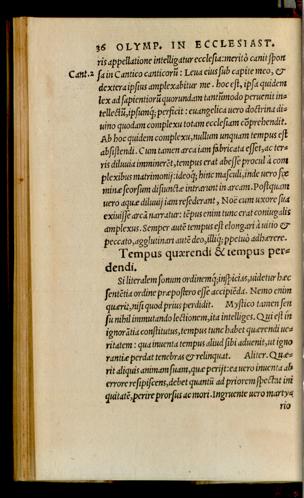 36 OLYMP. IN ECCLESIAST.
ris appellatione intelligatur ecclesia: meritò canit spon
Cant. 2 sa in Cantico canticorũ: Leua eius sub capite meo, &
dextera ipsius amplexabitur me. hoc est, ipsa quidem
lex ad sapientiorũ quorundam tantũmodo peruenit in-
tellectũ, ipsumq́; perficit: euangelica uero doctrina di-
uino quodam complexu totam ecclesiam cõprehendit.
Ab hoc quidem complexu, nullum unquam tempus est
absistendi. Cum tamen arca iam fabricata esset, ac ter-
ris diluuia imminerēt, tempus erat abesse procul à com
plexibus matrimonij: ideoq́; hinc masculi, inde uero fœ
minæ seorsum disiunctæ intrarunt in arcam. Postquam
uero aquæ diluuij iam resederant, Noë cum uxore sua
exiuisse arcã narratur: tẽpus enim tunc erat coniugalis
amplexus. Semper autē tempus est elongari à uitio &
peccato, agglutinari autē deo, illiq́; ppetuò adhærere.
Tempus quærendi & tempus per-
dendi.
Si literalem sonum ordinemq́; inspicias, uidetur hæc
sentẽtia ordine præpostero esse accipiẽda. Nemo enim
quærit, nisi quod prius perdidit. Mystico tamen sen
su nihil immutando lectionem, ita intelliges. Qui est in
ignorãtia constitutus, tempus tunc habet quærendi ue-
ritatem: qua inuenta tempus aliud sibi aduenit, ut igno
rantiæ perdat tenebras & relinquat. Aliter. Quæ-
rit aliquis animam suam, quæ perijt: ea uero inuenta ab
errore resipiscens, debet quantũ ad priorem spectat ini
quitatẽ, perire prorsus ac mori. Ingruente uero martyr
rio